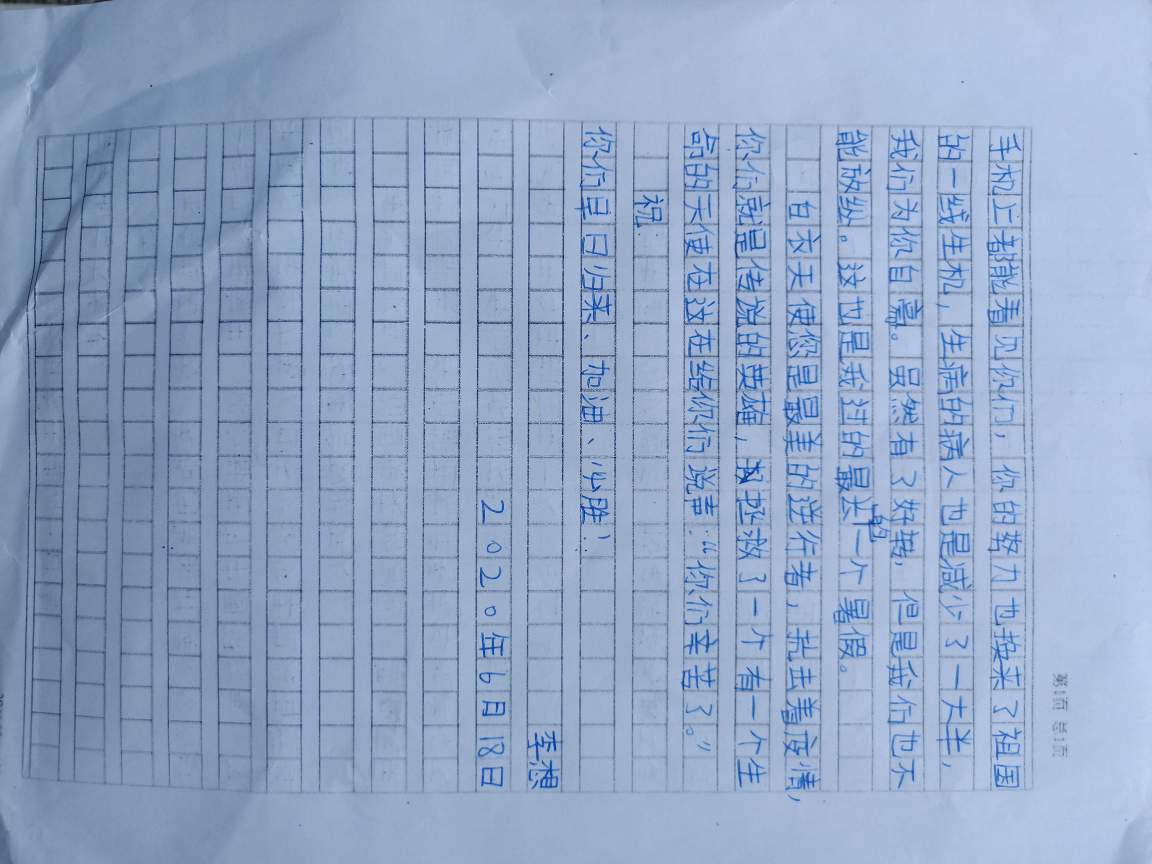 第1页 总1页
手机上都能看见你们，你的努力也换来了祖国
的一线生机，生病的病人也是减少了一大半，
我们为你自豪。虽然有了好转，但是我们也不
能放松。这也是我过的最长的一个暑假。
白衣天使您是最美的逆行者，抗击着疫情，
你们就是传说的英雄，拯救了一个有一个生
命的天使在这在给你们说声：“你们辛苦了。”
祝
你们早日归来、加油、必胜！
李想
2020年6月18日